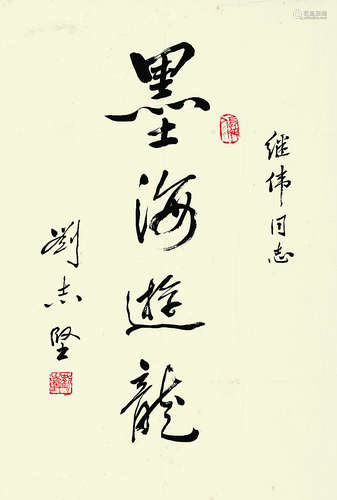 继伟同志
墨海遊龍
劉志堅